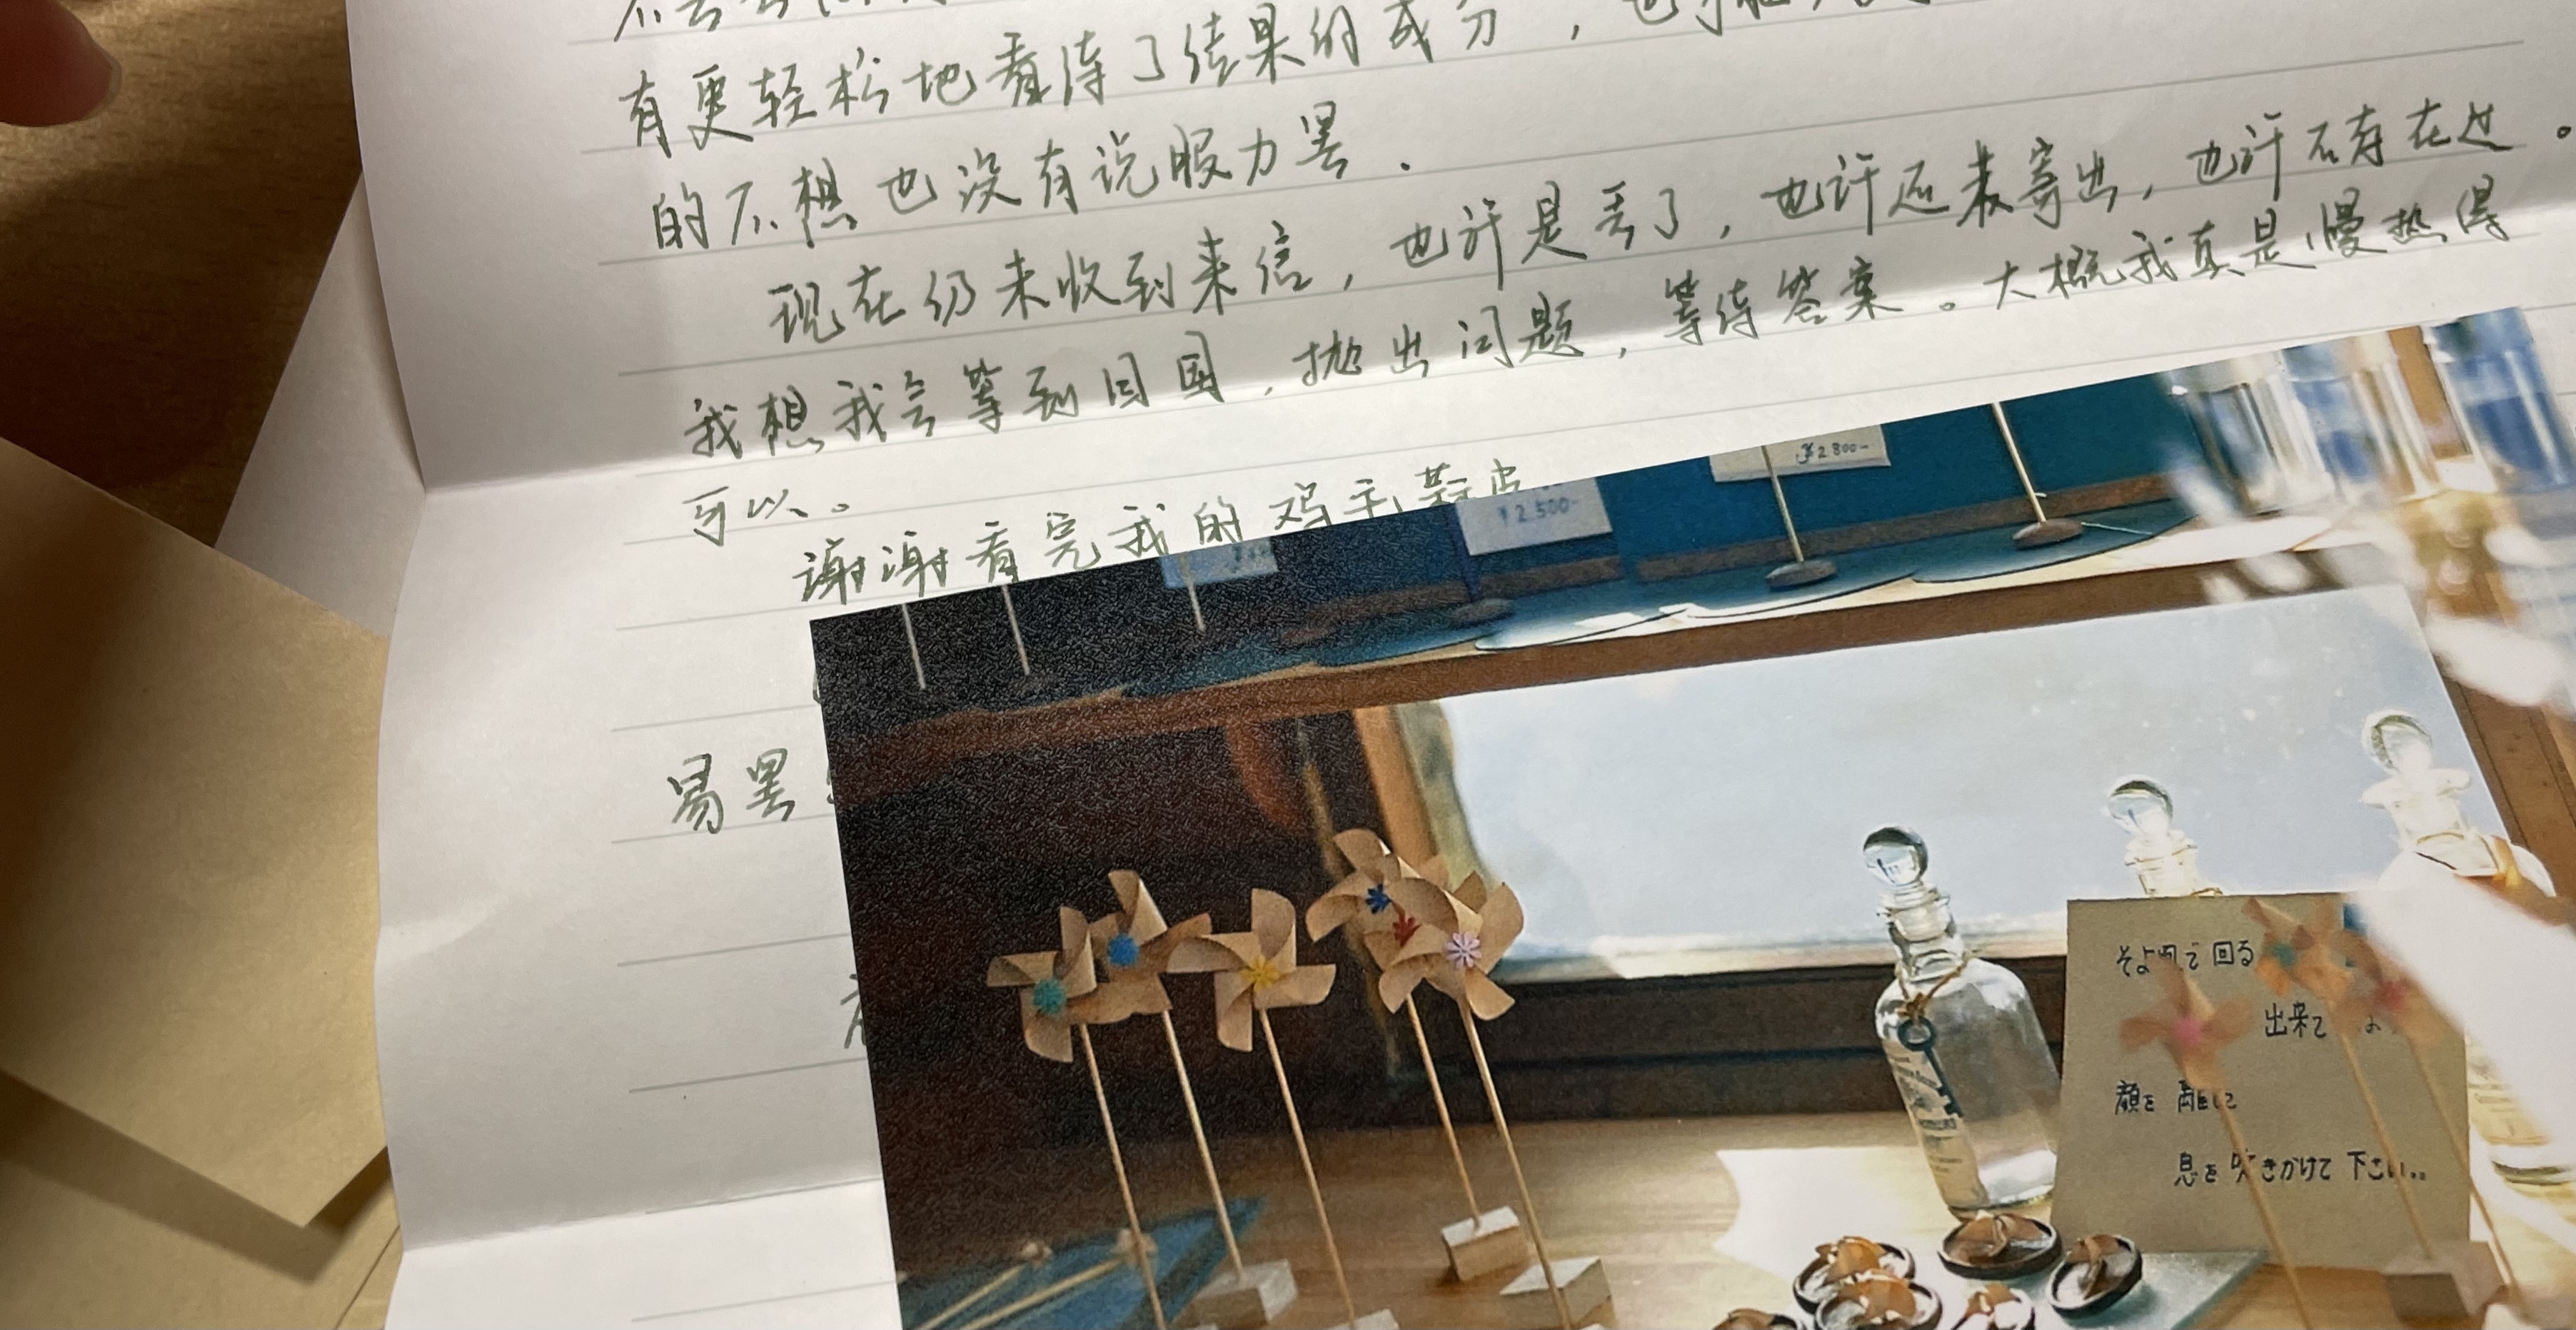 有更轻松地看待了结果的成分，也
的不想也没有说服力罢.
现在仍未收到来信，也许是丢了，也许还未寄出，也许不存在过。
我想我会等到回国，抛出问题，等待答案。大概我真是慢热得
可以。
谢谢看完我的鸡毛蒜皮
易罢
¥2800-
¥2,500-
そよ風で回る
出来て
顔を離して
息を吹きかけて下さい。